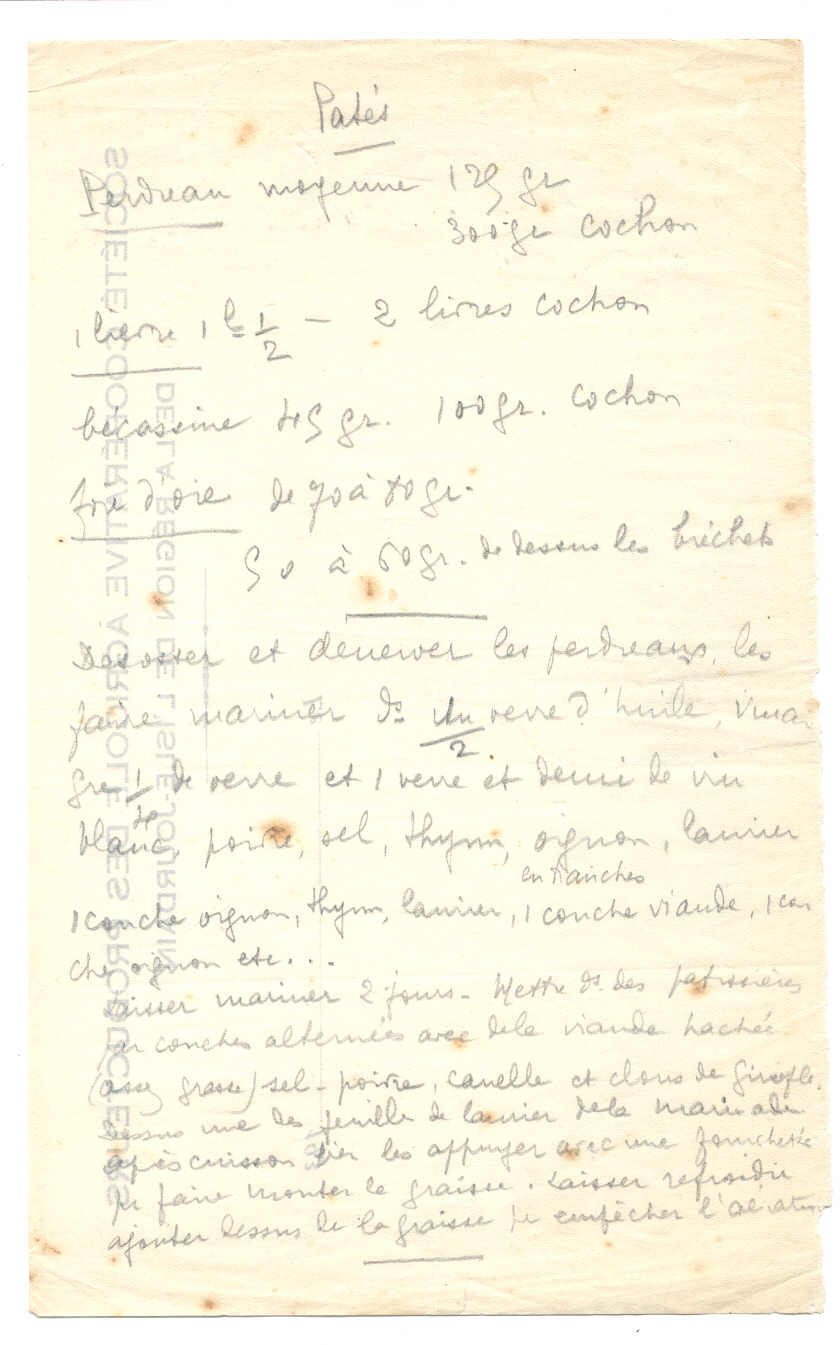 Patés
Perdreau moyenne 125 gr
300 gr cochon
1 lièvre 1 l 1/2 – 2 livres cochon
bécassine 45 gr. 100 gr. cochon
foie d'oie de 70 à 80 gr.
50 à 60 gr. de dessus les bréchets
Desosser et denerver les perdreaux, les
faire mariner ds un/2 verre d'huile, vinai
gre 1/4 de verre et 1 verre et demi de vin
blanc, poivre, sel, thym, oignon, laurier
en tranches
1 couche oignon, thym, laurier, 1 couche viande, 1 cou
che oignon etc...
Laisser mariner 2 jours - Mettre ds des patissières
par couches alternées avec dela viande hachée
(assez grasse) sel - poivre, canelle et clous de girofle.
Dessus une des feuille de laurier dela marinade
après cuisson bien les appuyer avec une fourchette
pr faire monter la graisse. Laisser refroidir
ajouter dessus de la graisse pr empêcher l'aération
SOCIÉTÉ COOPÉRATIVE AGRICOLE DES PRODUCTEURS
DE LA RÉGION DE L'ISLE-JOURDAIN